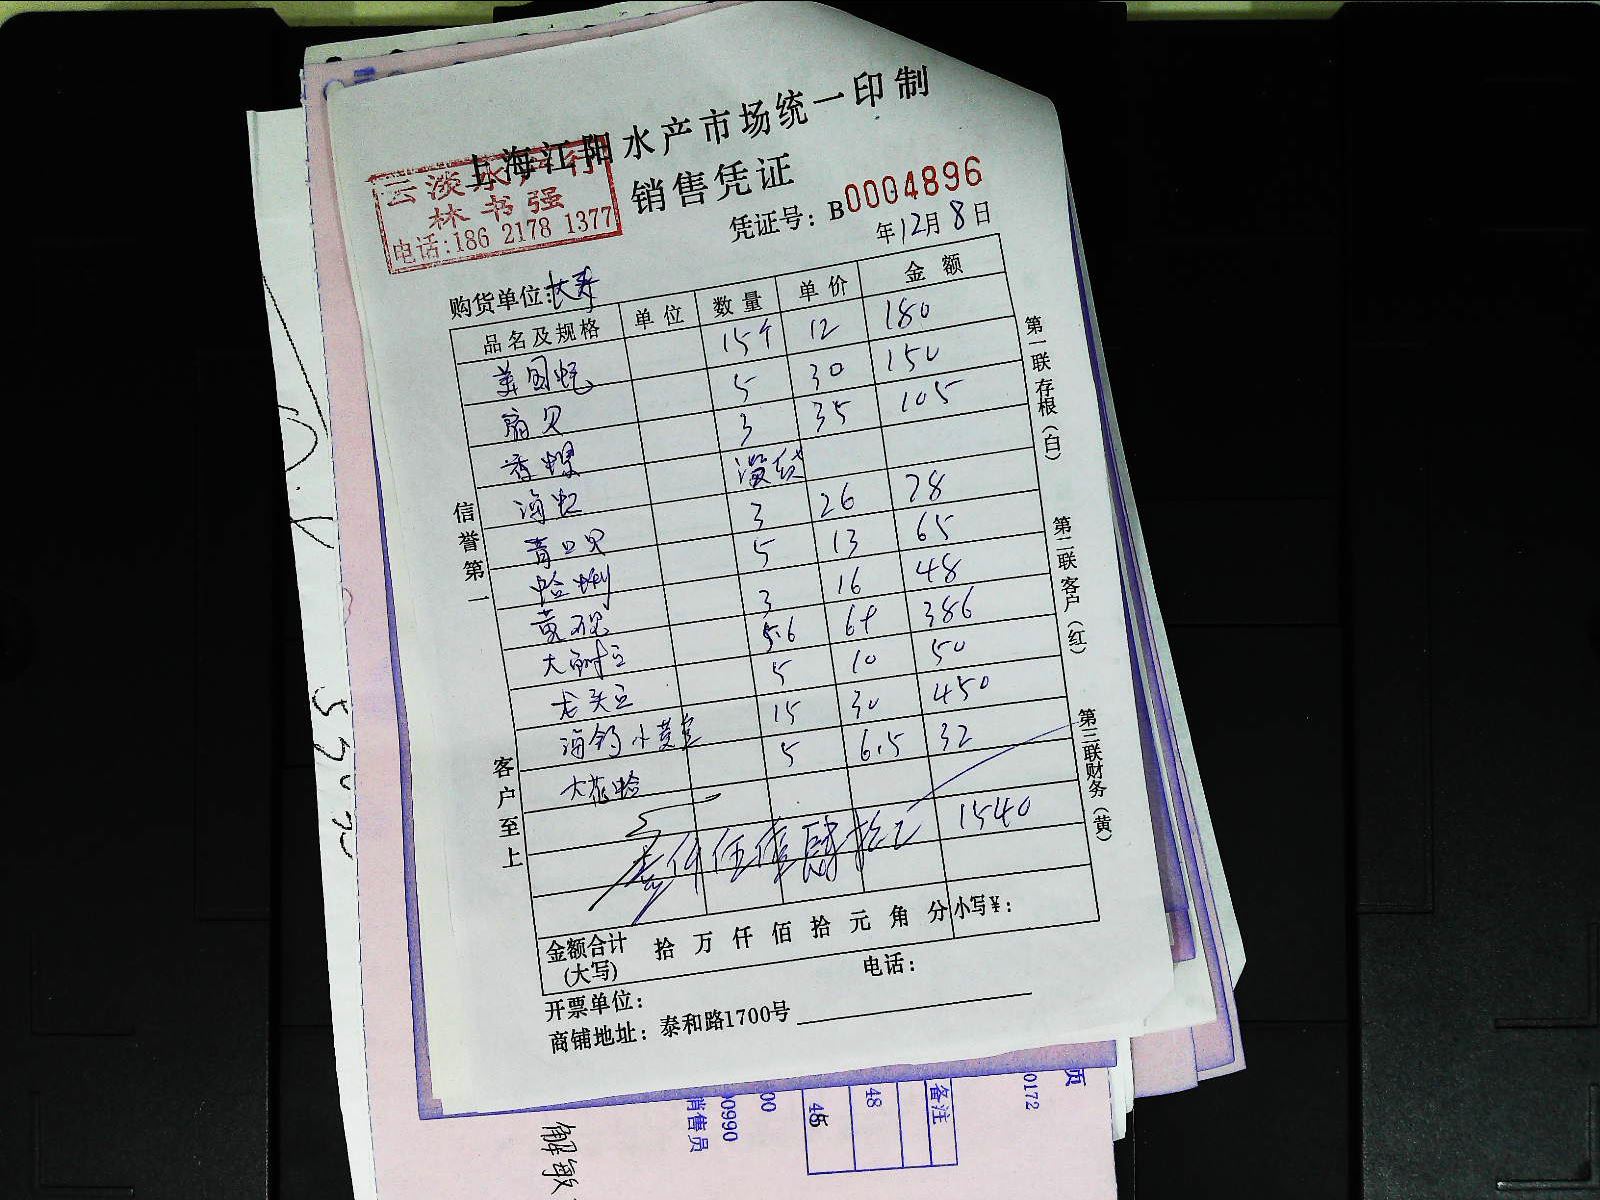 上海江阳水产市场统一印制
销售凭证
云淡水产行
林书强
电话:186 2178 1377
凭证号: B0004896
年12月8日
购货单位:长寿
品名及规格 单位 数量 单价 金额
美国蚝 15个 12 180
扇贝 5 30 150
香螺 3 35 105
海虹 没货
青口贝 3 26 78
蛤蜊 5 13 65
黄蚬 3 16 48
5.6 64 386
5 10 50
15 30 450
大花蛤 5 6.5 32
壹仟伍佰肆拾元 1540
金额合计 拾 万 仟 佰 拾 元 角 分 小写¥:
(大写)
开票单位: 电话:
商铺地址: 泰和路1700号
信誉第一
客户至上
第一联存根(白)
第二联客户(红)
第三联财务(黄)
备注
48
45
销售员
00990
00
0172
员